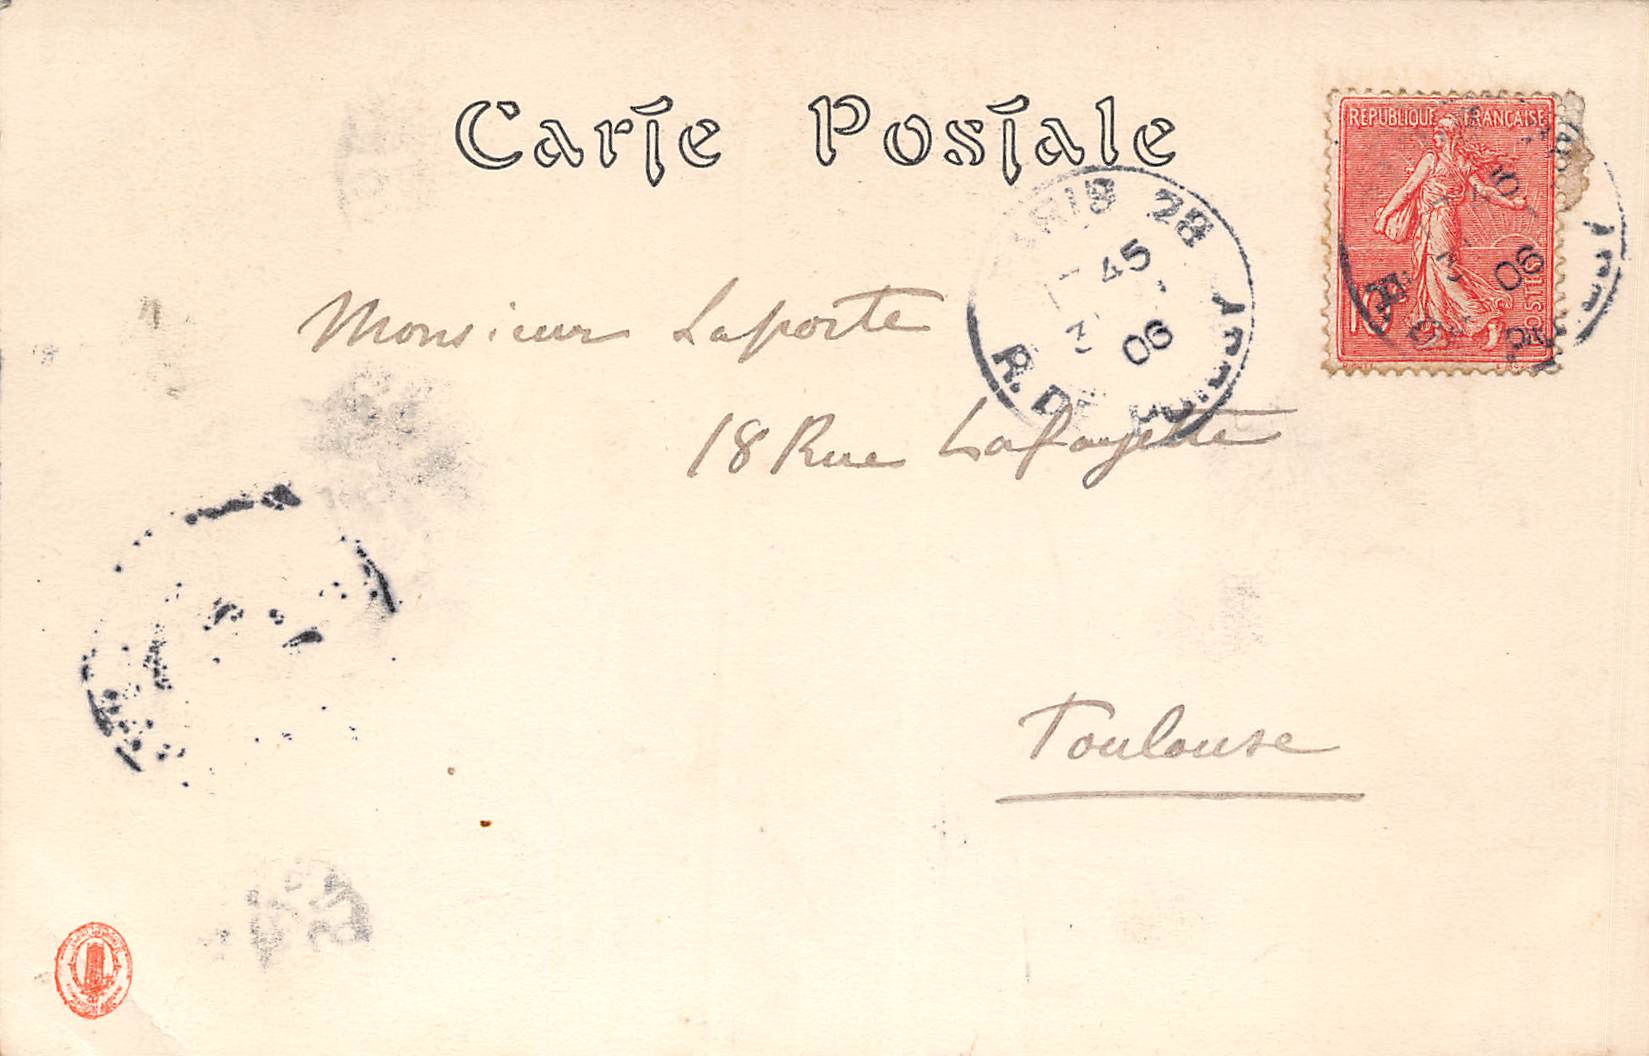 Carte Postale
RÉPUBLIQUE FRANÇAISE
POSTES
10
PARIS 28
45
3 06
R. DE
06
Monsieur Laporte
18 Rue Lafayette
Toulouse